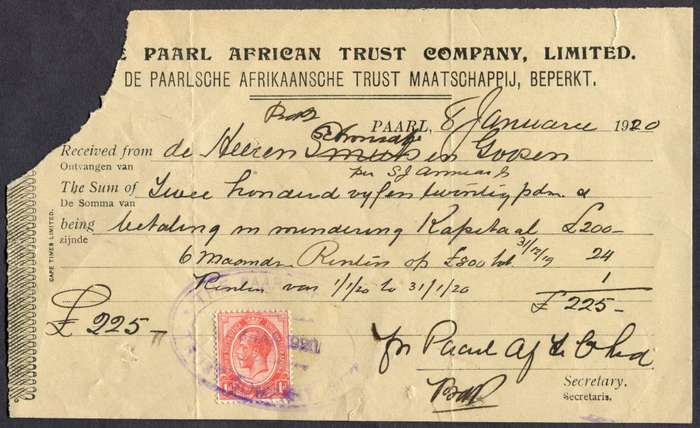 E PAARL AFRICAN TRUST COMPANY, LIMITED.
DE PAARLSCHE AFRIKAANSCHE TRUST MAATSCHAPPIJ, BEPERKT.
PAARL, 8 Januarie 1920
Received from de Heeren en Goosen
Ontvangen van
per SJ
The Sum of Twee honderd vyf en twintig pdn
De Somma van
being betaling in mindering Kapitaal £200-
zijnde
6 maanden Renten op £800 tot 31/12/19 24
Renten van 1/1/20 to 31/1/20 1
£225-
£225-
pr Paarl Af T C Ltd.
Secretary.
Secretaris.
CAPE TIMES LIMITED.